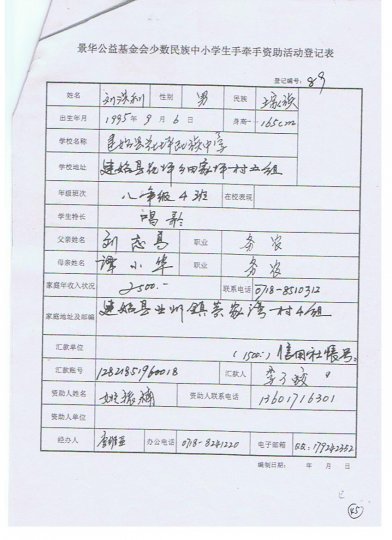 景华公益基金会少数民族中小学生手牵手资助活动登记表
登记编号: 89
姓名 刘洪利 性别 男 民族 土家族
出生年月 1995年9月6日 身高 165cm
学校名称 建始县花坪民族中学
学校地址 建始县花坪乡田家坪村五组
年级班次 八年级4班 在校表现
学生特长 唱歌
父亲姓名 刘志高 职业 务农
母亲姓名 谭小华 职业 务农
家庭年收入状况 2500.- 联系电话 0718-8510312
家庭地址及邮编 建始县业州镇 家湾一村4组
汇款单位 (1500:) 信用社帐号。
汇款账号 12821851960018 汇款人 李
资助人姓名 姚 资助人联系电话 13601716301
资助人单位
经办人 办公电话 0718-8241220 电子邮箱 QQ:179242352
编制日期: 年 月 日
45